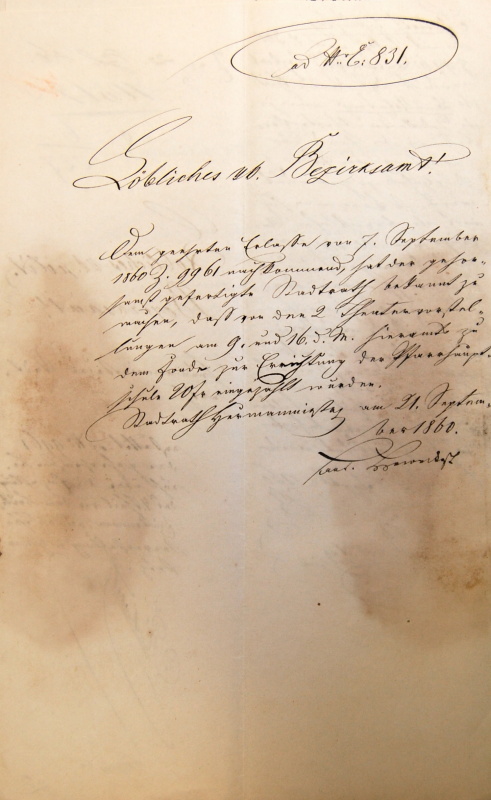 ad N: E: 831.
Löbliches kk. Bezirksamt!
Dem geehrten Erlasse von 7. September
1860 Z. 9961 nachkommend, hat der gehor-
samst gefertigte Stadtrath bekannt zu
machen, dass von den 2 Theatervorstel-
lungen am 9. und 16. d. M. hierorts zu
dem Fonde zur Errichtung der Pfarrhaupt-
schule 20 fr eingezahlt wurden.
Stadtrath Hermannmiestez am 21. Septem-
ber 1860.